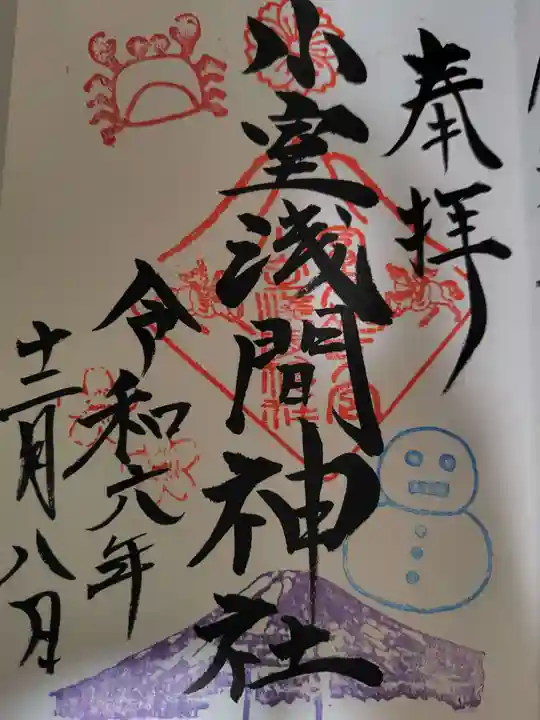 奉拝
小室浅間神社
令和六年
十二月八日